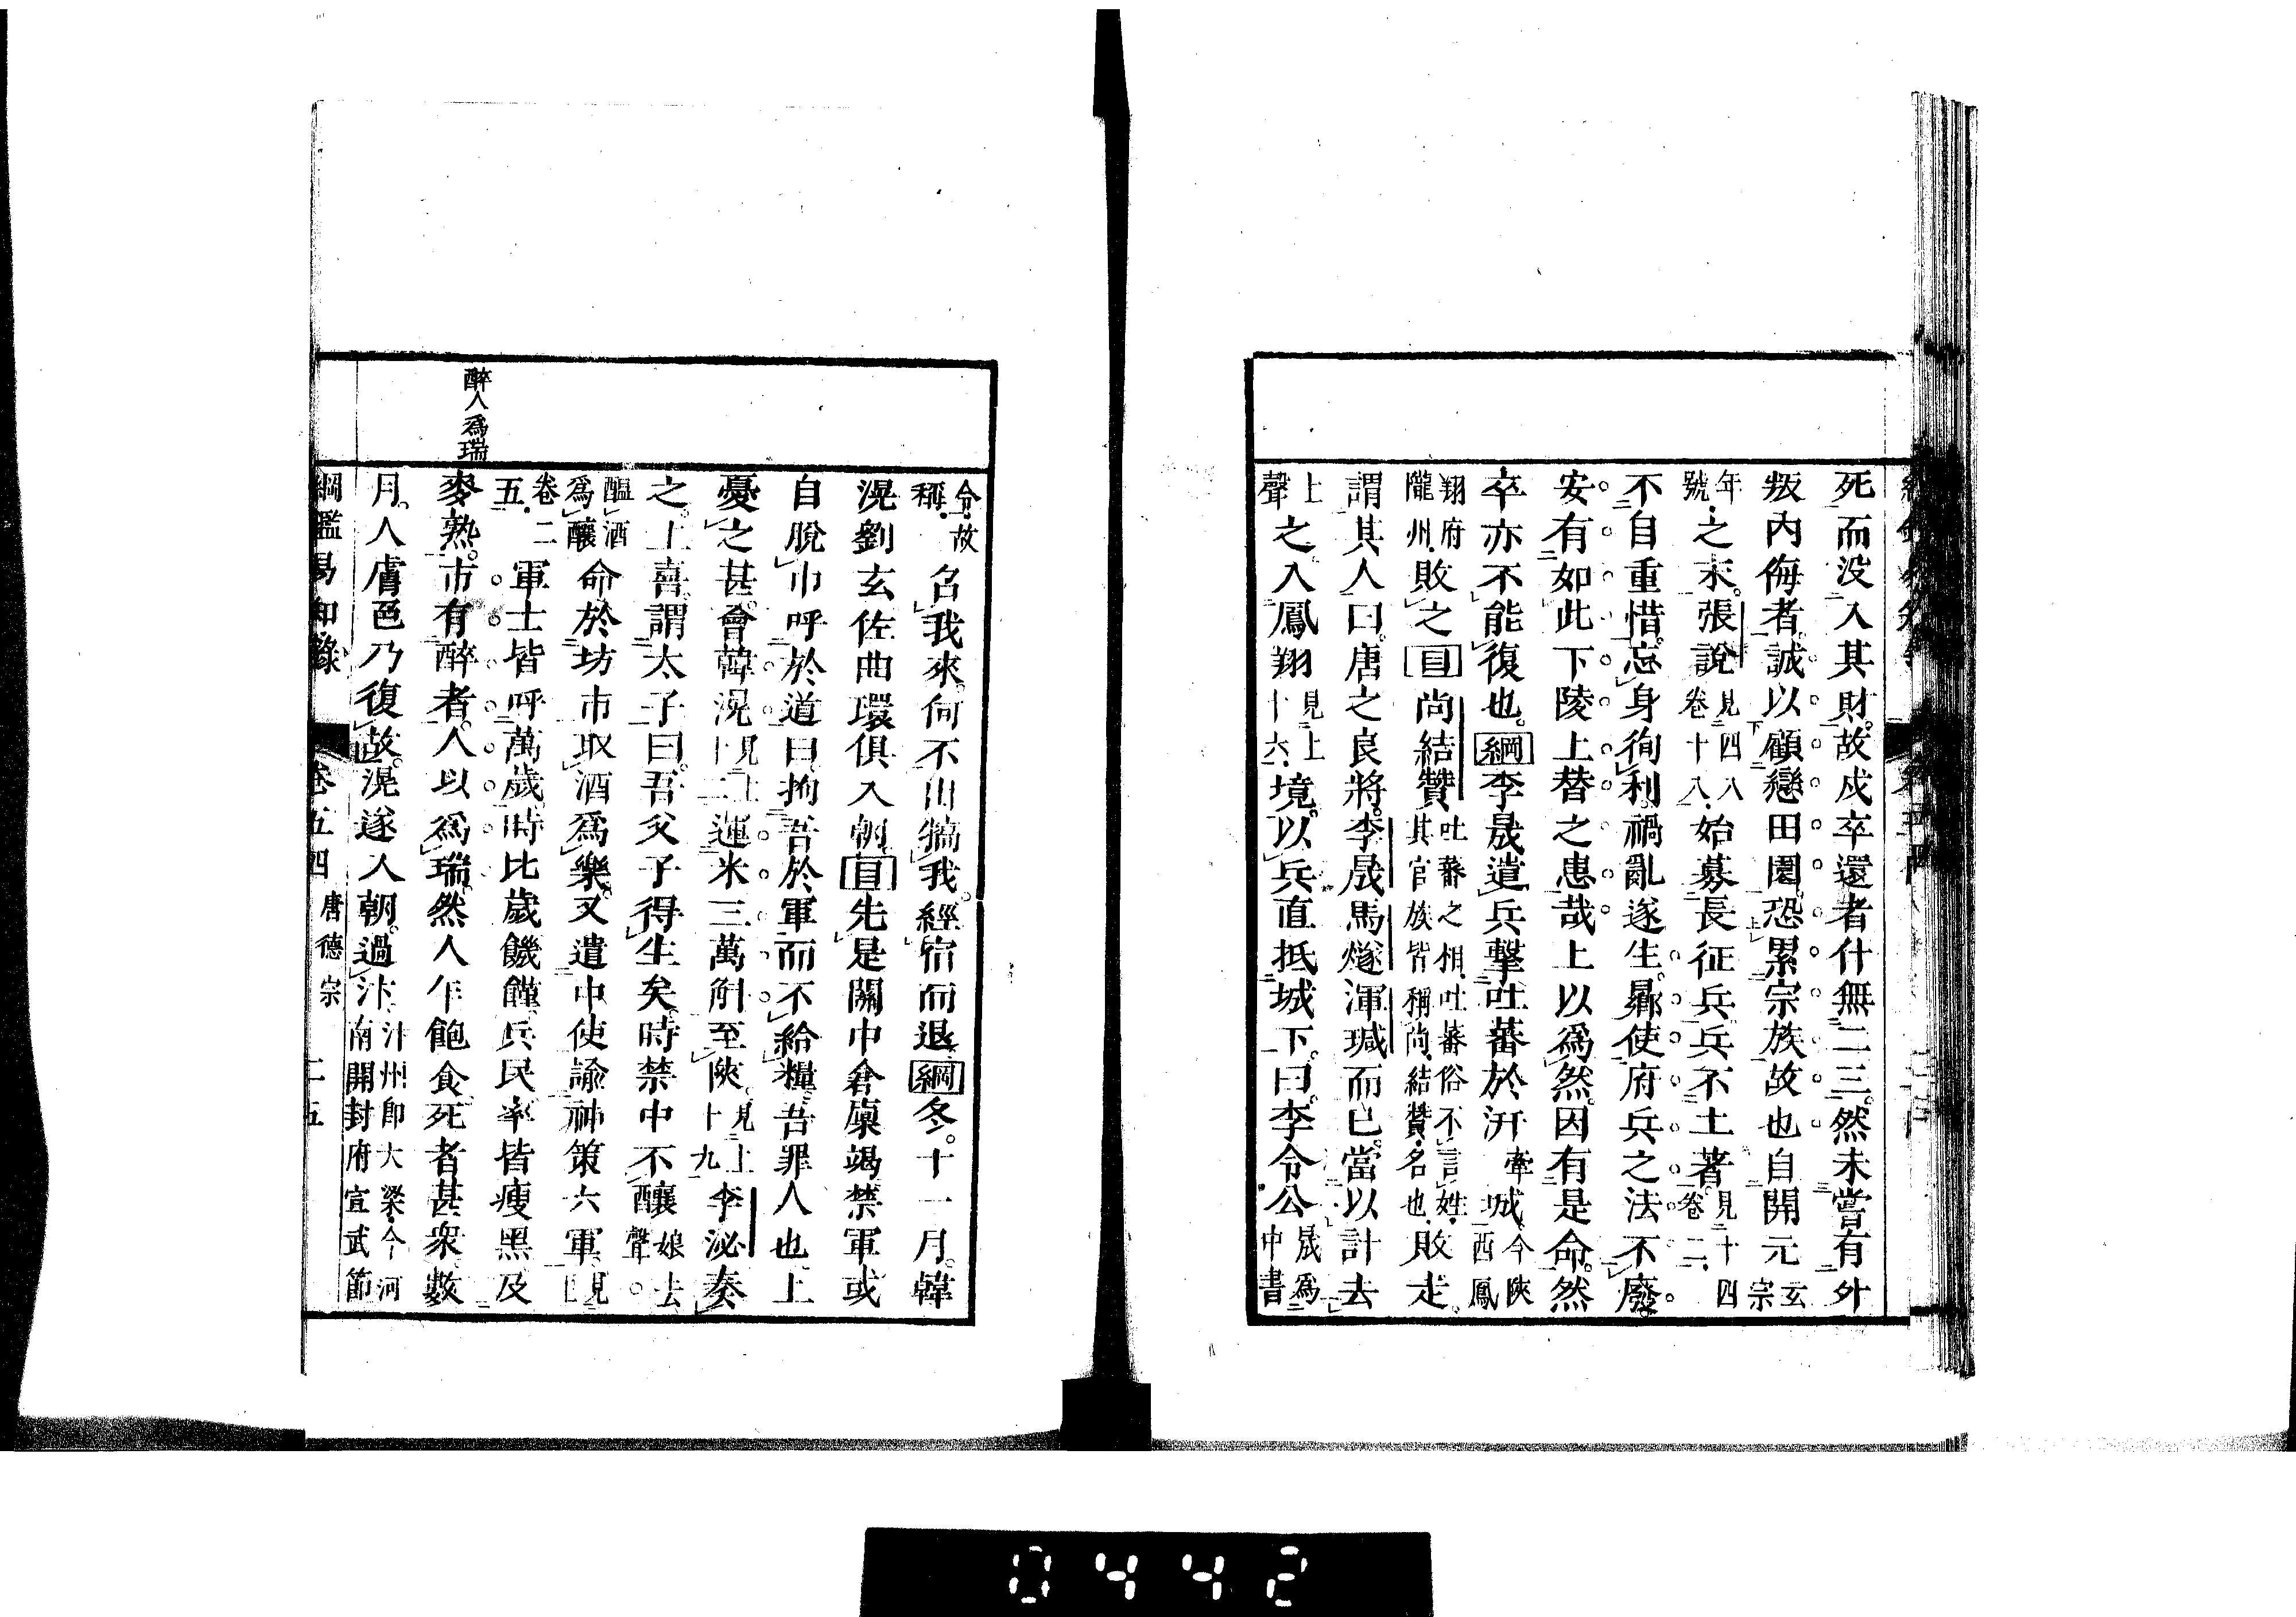 死而没入其財。故戍卒還者什無二三。然未嘗有外
叛內侮者。誠以顧戀田園。恐累宗族故也自開元玄宗
年號.之末。張說見四八卷十八.始募長征兵。兵不土著。見二十四卷二.
不自重惜。忘身徇利。禍亂遂生。曏使府兵之法不廢。
安有如此下陵上替之患哉。上以爲然。因有是命。然
卒亦不能復也。綱李晟遣兵擊吐蕃於汧牽城今陝西鳳
翔府隴州.敗之目尚結贊吐蕃之相.吐蕃俗不言姓.其官族皆稱尚.結贊.名也.敗走。
謂其人曰。唐之良將。李晟馬燧渾瑊而已。當以計去
上聲之。入鳳翔見上十六.境。以兵直抵城下。曰。李令公晟爲中書
令.故稱.召我來。何不出犒我。經宿而退綱冬。十一月。韓
滉劉玄佐曲環俱入朝。目先是關中倉廩竭禁軍或
自脫巾呼於道曰。拘吾於軍而不給糧。吾罪人也上
憂之甚。會韓滉見上十二運米三萬斛至陝。見上十九李泌奏
之。上喜。謂太子曰。吾父子得生矣。時禁中不釀娘去聲。
醞酒爲釀命於坊市取酒爲樂。又遣中使諭神策六軍。見
卷二五.軍士皆呼萬歲。時比歲饑饉。兵民率皆瘦黑。及
麥熟。市有醉者。人以爲瑞。然人乍飽食。死者甚衆。數
月。人膚色乃復故。滉遂入朝。過汴汴州卽大梁.今河南開封府宣武節
醉人爲瑞
綱鑑易知錄 卷五四 唐德宗 二五
0442